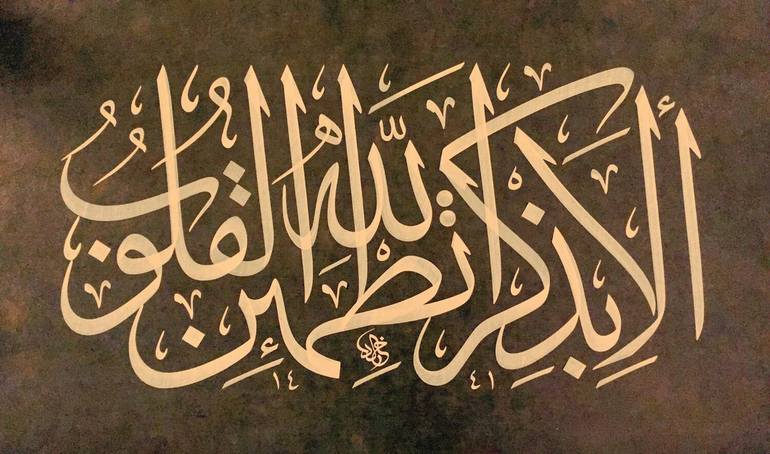 أَلَا بِذِكْرِ اللَّهِ تَطْمَئِنُّ الْقُلُوبُ
١٤٤١